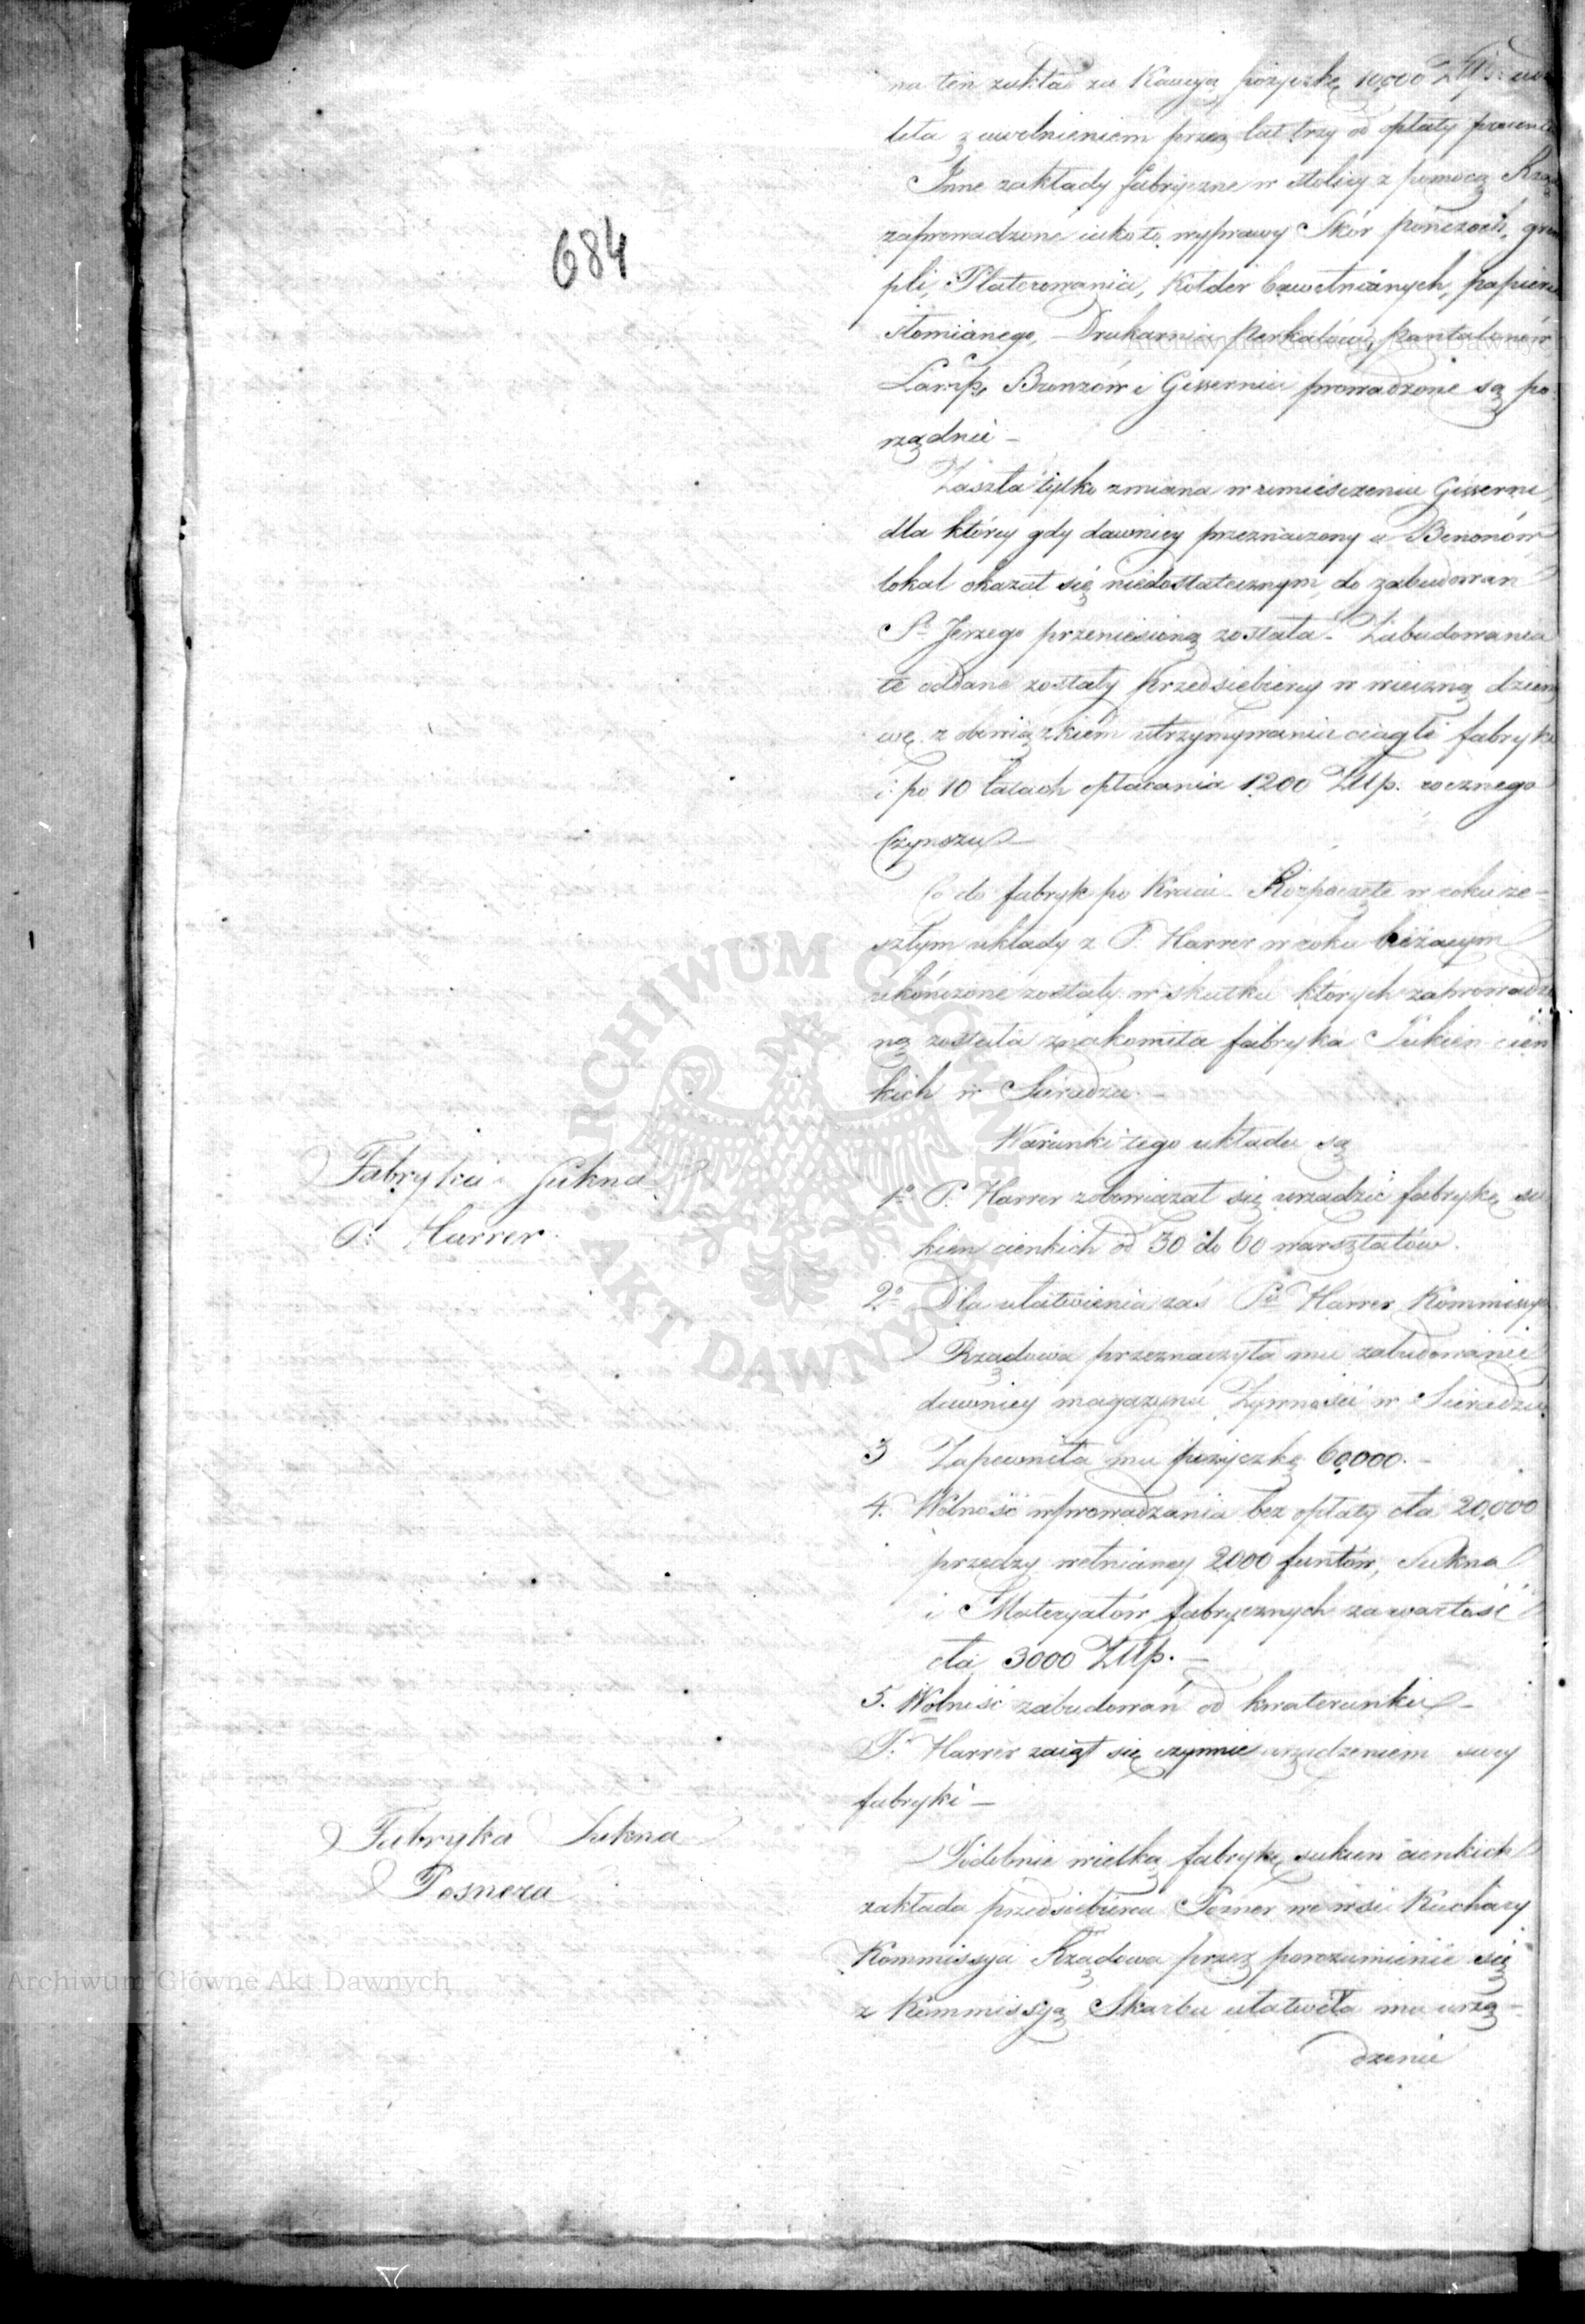 684
na ten zakład za Kaucyą pożyczkę 10,000 Złp.
z uwolnieniem przez lat trzy od opłaty
Inne zakłady fabryczne w stolicy z pomocą
zaprowadzone iako to wyprawy Skór pończoch,
pli, Platerowania, Kołder bawełnianych, papieru
słomianego, Drukarnia perkalów, pantalonów
Lamp, Bronzów i Gisernia prowadzone są po
rządnie –
Zaszła tylko zmiana w umieszczeniu Giserni,
dla którey gdy dawniey przeznaczony u Benonów
lokal okazał się niedostatecznym, do zabudowań
Sgo Jerzego przeniesioną została. Zabudowania
te oddane zostały Przedsiębiercy w wieczną dzierża
wę z obowiązkiem utrzymywania ciągle fabryki
i po 10 latach opłacania 1200 Złtp. rocznego
Czynszu –
Co do fabryk po Kraiu. Rozpoczęte w roku ze-
szłym układy z P. Harrer w roku bieżącym
ukończone zostały w skutku których zaprowadzo
ną została znakomita fabryka Sukien cien
kich w Sieradzu. –
Warunki tego układu są
Fabryka Sukna
P. Harrer
1o P. Harrer zobowiązał się urządzić fabrykę su
kien cienkich od 30 do 60 warsztatów.
2o Dla ułatwienia zaś Pa Harrer Kommissya
Rządowa przeznaczyła mu zabudowanie
dawniey magazynu Żywności w Sieradzu
3 Zapewniła mu pożyczkę 60,000. –
4. Wolność wprowadzania bez opłaty cła 20,000
przędzy wełnianey 2000 funtów, Sukna
i Materyałów fabrycznych za wartość
cła 3000 Złtp. –
5. Wolność zabudowań od kwaterunku –
P. Harrer zaiął się czynnie urządzeniem swey
fabryki –
Fabryka Sukna
Posnera
Podobnie wielką fabrykę sukien cienkich
zakłada przedsiębierca Posner we wsi Kuchary
Kommissya Rządowa przez porozumienie się
z Kommissyą Skarbu ułatwiła mu urzą-
dzenie
ARCHIWUM GŁÓWNE AKT DAWNYCH
Archiwum Główne Akt Dawnych
Archiwum Główne Akt Dawnych